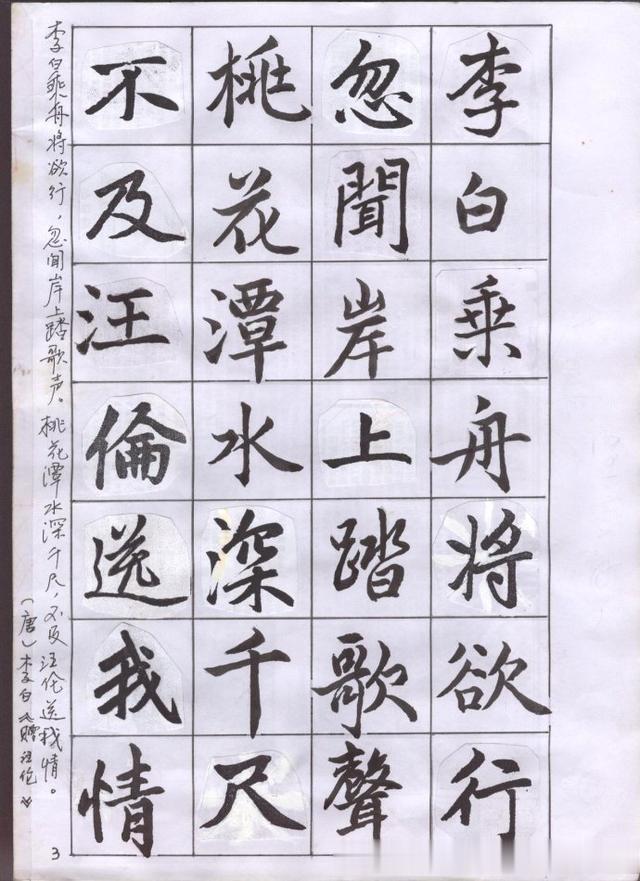 李白乘舟將欲行
忽聞岸上踏歌聲
桃花潭水深千尺
不及汪倫送我情
李白乘舟将欲行，忽闻岸上踏歌声。桃花潭水深千尺，不及汪伦送我情。
（唐）李白《赠汪伦》
3